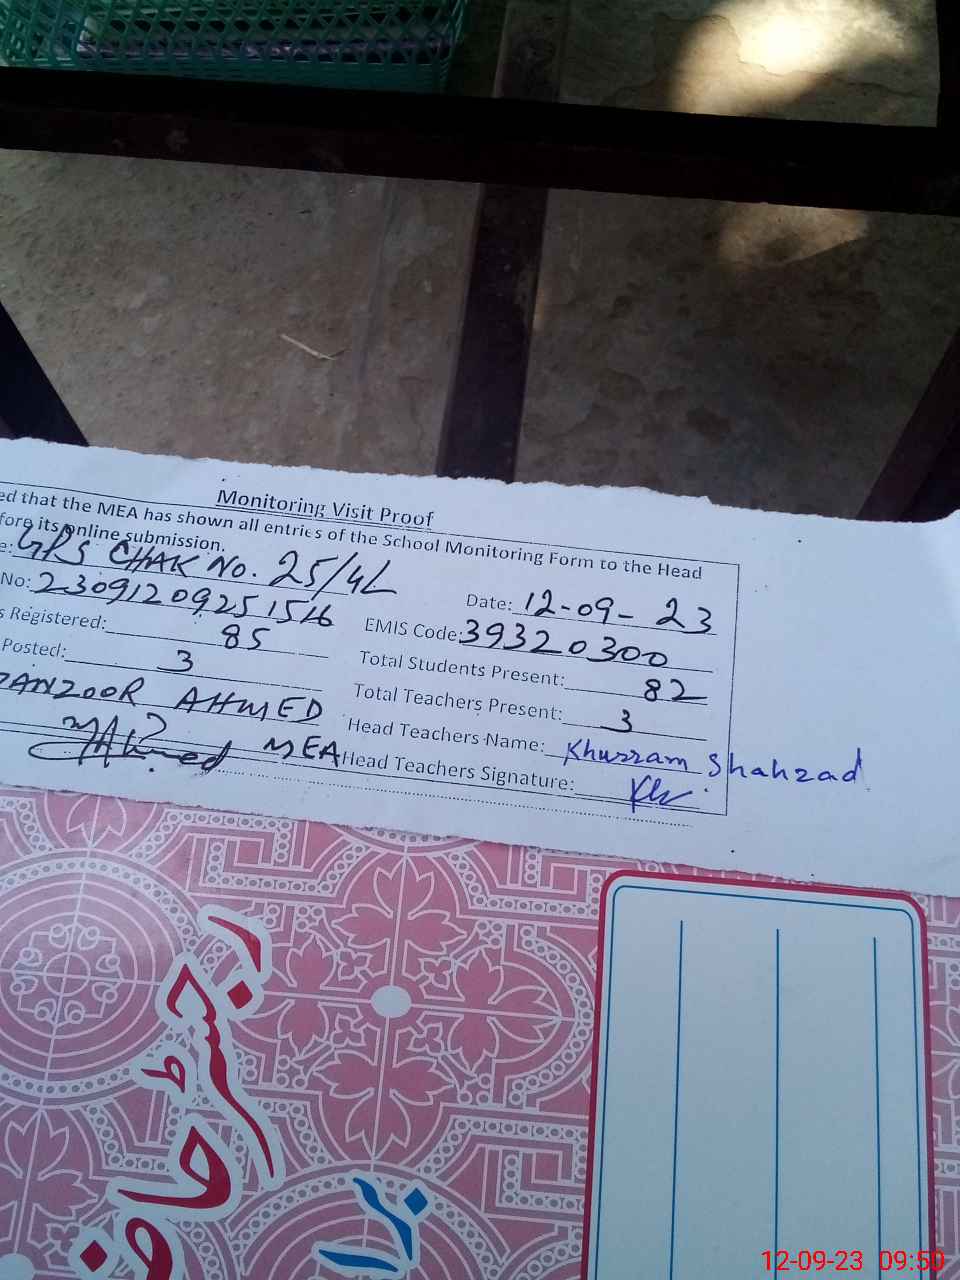 Monitoring Visit Proof
ed that the MEA has shown all entries of the School Monitoring Form to the Head
fore its online submission.
e: GPS CHAK No. 25/4L Date: 12-09-23
No: 2309120925 EMIS Code: 39320300
s Registered: 85 Total Students Present: 82
Posted: 3 Total Teachers Present: 3
ANZOOR AHMED Head Teachers Name: Khurram Shahzad
MAhmed MEA Head Teachers Signature: Kh
رجسٹر حاضری
برا
12-09-23 09:50